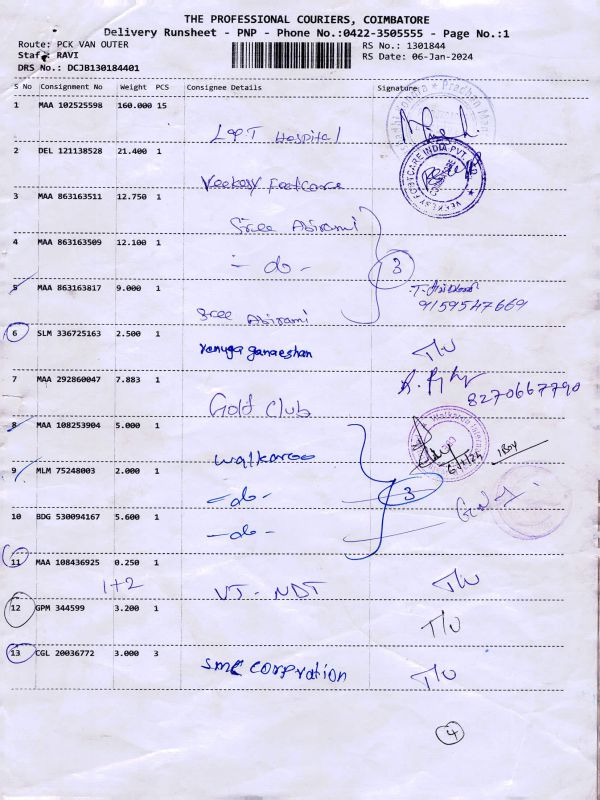 THE PROFESSIONAL COURIERS, COIMBATORE
Delivery Runsheet - PNP - Phone No.:0422-3505555 - Page No.:1
Route: PCK VAN OUTER
RS No.: 1301844
Staf : RAVI
RS Date: 06-Jan-2024
DRS No.: DCJB130184401
S No Consignment No Weight PCS Consignee Details Signature
1 MAA 102525598 160.000 15
Hospital
2 DEL 121138528 21.400 1
Veekesy Footcare
VEEKESY FOOTCARE INDIA PVT. LTD
3 MAA 863163511 12.750 1
Sree Abirami
4 MAA 863163509 12.100 1
- do -
3
5 MAA 863163817 9.000 1
Sree Abirami
9159547669
6 SLM 336725163 2.500 1
Venuga ganaeshan
T/U
7 MAA 292860047 7.883 1
Gold Club
8270667790
8 MAA 108253904 5.000 1
Walkaroo
6/1/24
1 Boy
9 MLM 75248003 2.000 1
- do -
3
10 BDG 530094167 5.600 1
- do -
11 MAA 108436925 0.250 1
1+2
VJ - NDT
T/U
12 GPM 344599 3.200 1
T/U
13 CGL 20036772 3.000 3
SMC Corpration
T/U
4